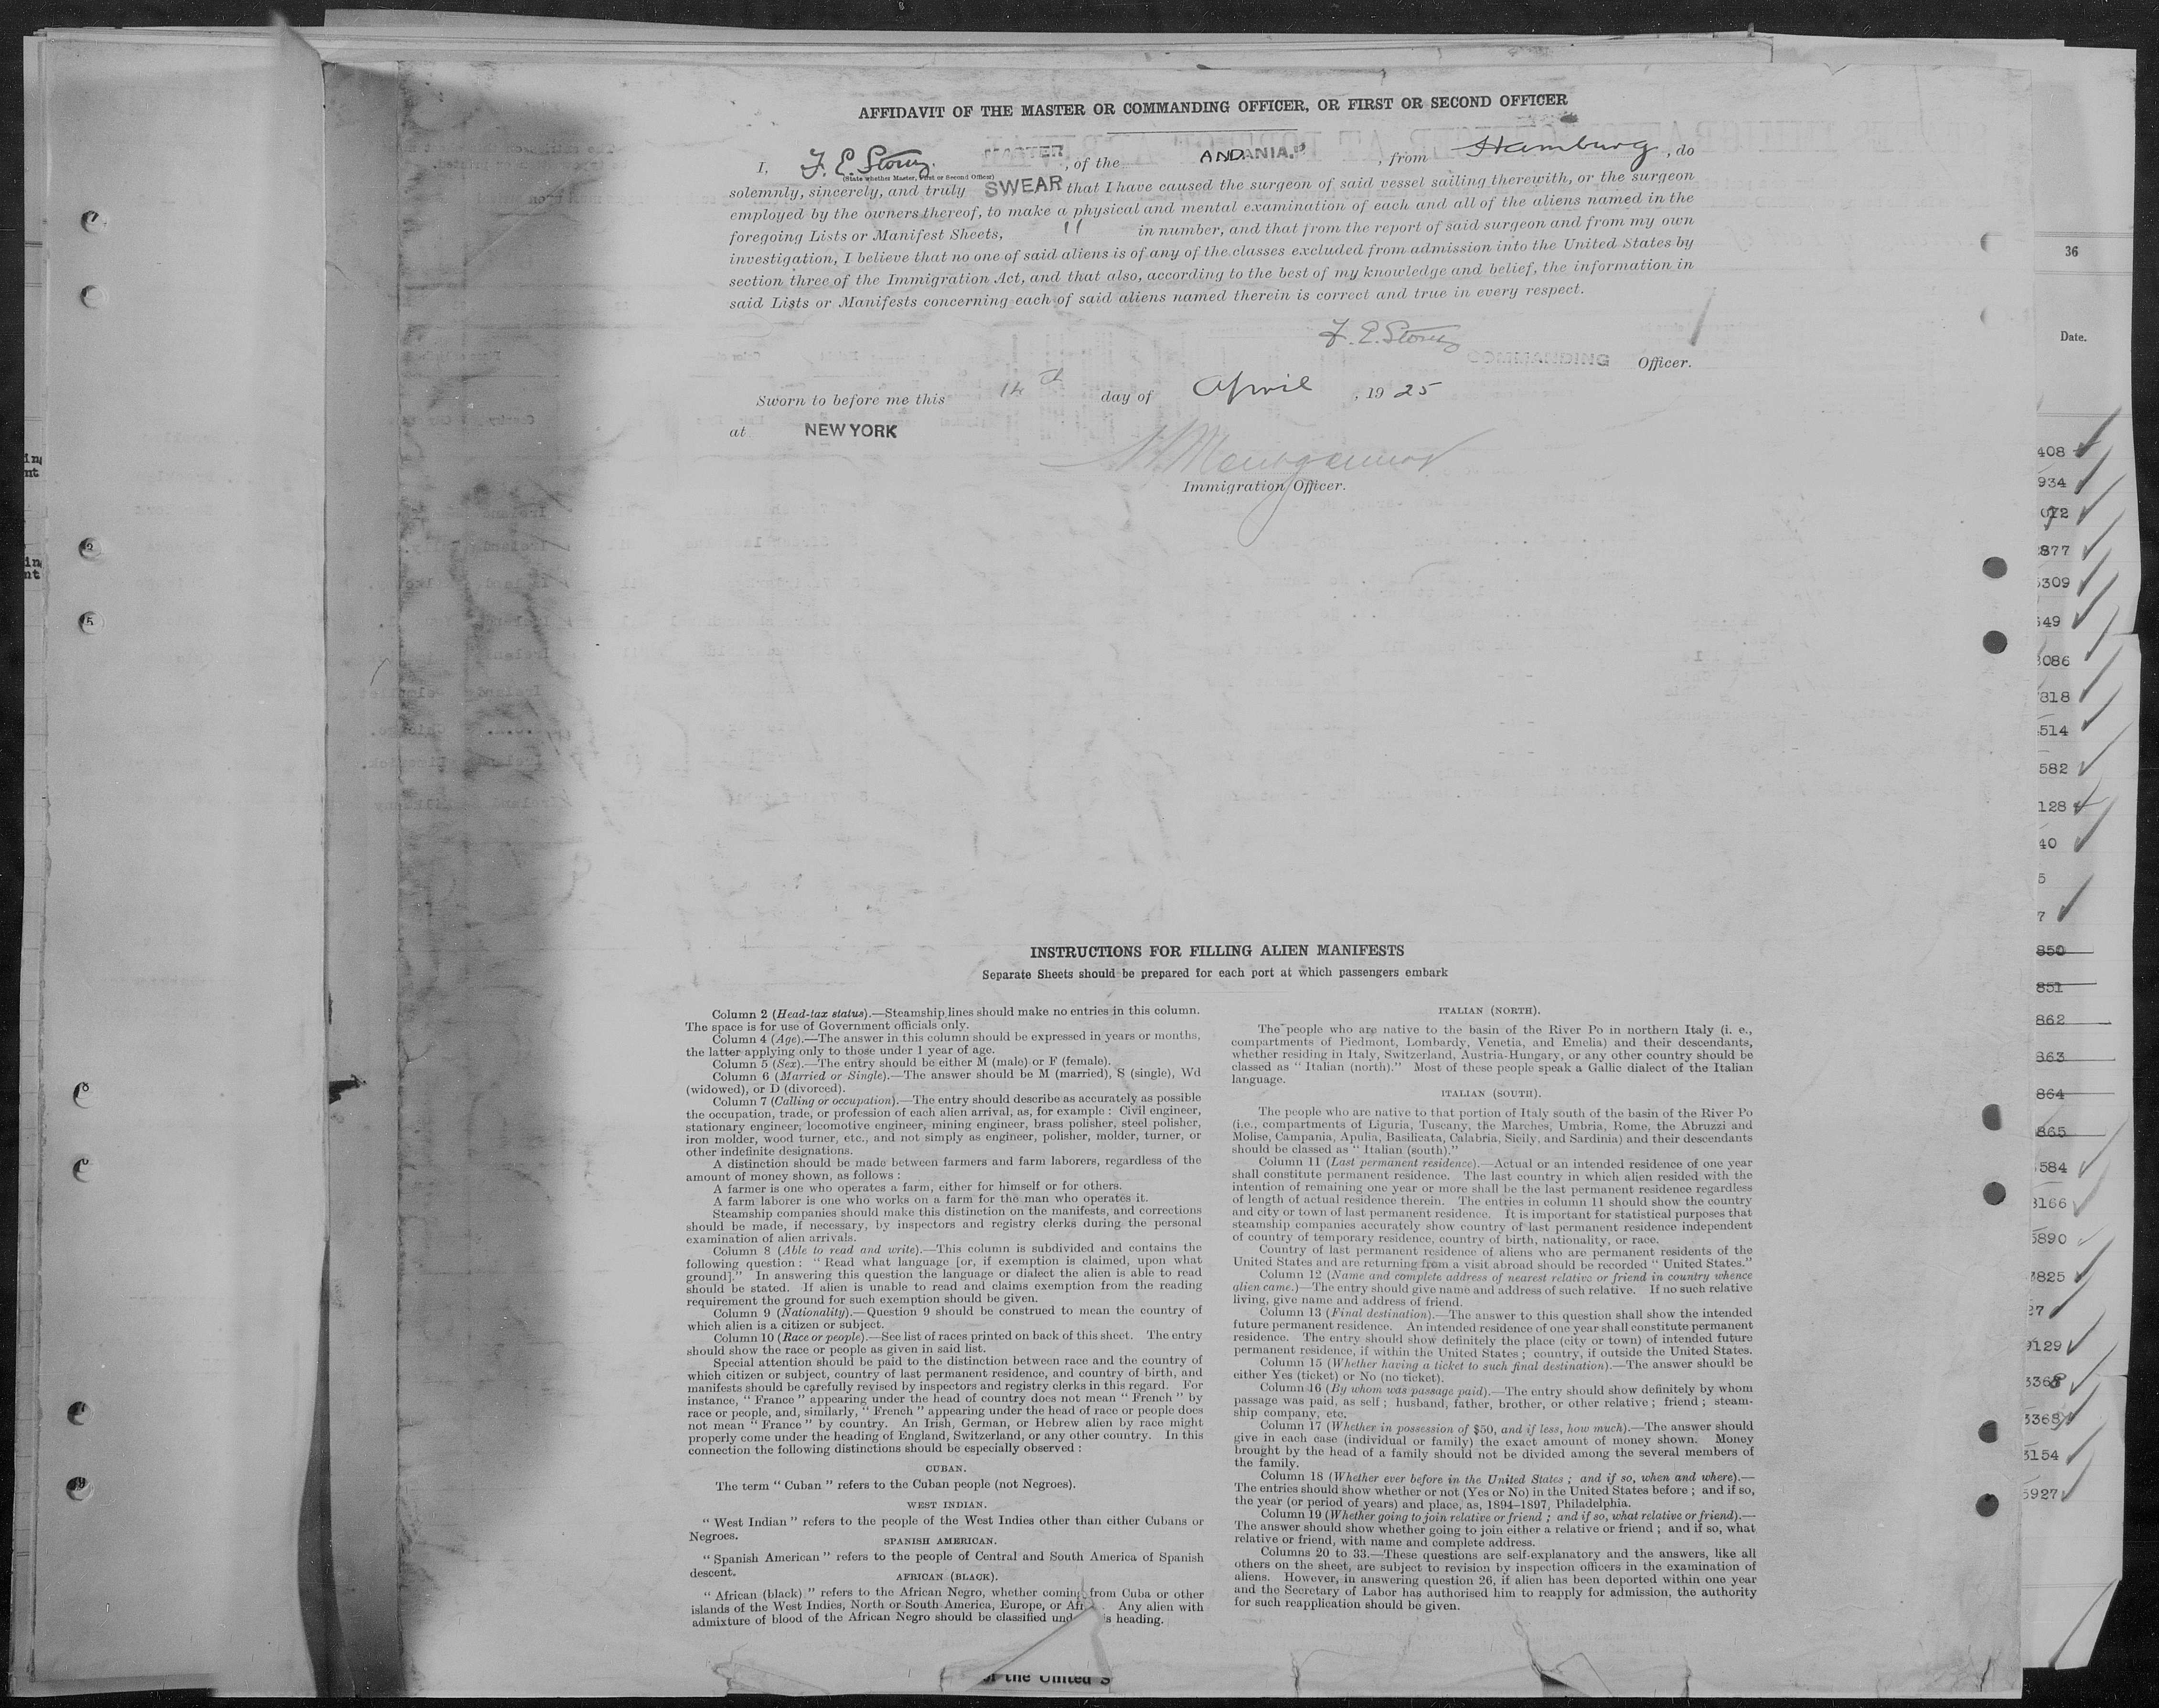 AFFIDAVIT OF THE MASTER OR COMMANDING OFFICER, OR FIRST OR SECOND OFFICER
I, F. E. Storey. MASTER, of the ANDANIA.", from Hamburg, do
(State whether Master, First or Second Officer)
solemnly, sincerely, and truly SWEAR that I have caused the surgeon of said vessel sailing therewith, or the surgeon
employed by the owners thereof, to make a physical and mental examination of each and all of the aliens named in the
foregoing Lists or Manifest Sheets, 11 in number, and that from the report of said surgeon and from my own
investigation, I believe that no one of said aliens is of any of the classes excluded from admission into the United States by
section three of the Immigration Act, and that also, according to the best of my knowledge and belief, the information in
said Lists or Manifests concerning each of said aliens named therein is correct and true in every respect.
F. E. Storey
COMMANDING Officer.
Sworn to before me this 14th day of April, 1925
at NEW YORK
Immigration Officer.
INSTRUCTIONS FOR FILLING ALIEN MANIFESTS
Separate Sheets should be prepared for each port at which passengers embark
Column 2 (Head-tax status).—Steamship lines should make no entries in this column.
The space is for use of Government officials only.
Column 4 (Age).—The answer in this column should be expressed in years or months,
the latter applying only to those under 1 year of age.
Column 5 (Sex).—The entry should be either M (male) or F (female).
Column 6 (Married or Single).—The answer should be M (married), S (single), Wd
(widowed), or D (divorced).
Column 7 (Calling or occupation).—The entry should describe as accurately as possible
the occupation, trade, or profession of each alien arrival, as, for example : Civil engineer,
stationary engineer, locomotive engineer, mining engineer, brass polisher, steel polisher,
iron molder, wood turner, etc., and not simply as engineer, polisher, molder, turner, or
other indefinite designations.
A distinction should be made between farmers and farm laborers, regardless of the
amount of money shown, as follows :
A farmer is one who operates a farm, either for himself or for others.
A farm laborer is one who works on a farm for the man who operates it.
Steamship companies should make this distinction on the manifests, and corrections
should be made, if necessary, by inspectors and registry clerks during the personal
examination of alien arrivals.
Column 8 (Able to read and write).—This column is subdivided and contains the
following question : " Read what language [or, if exemption is claimed, upon what
ground]." In answering this question the language or dialect the alien is able to read
should be stated. If alien is unable to read and claims exemption from the reading
requirement the ground for such exemption should be given.
Column 9 (Nationality).—Question 9 should be construed to mean the country of
which alien is a citizen or subject.
Column 10 (Race or people).—See list of races printed on back of this sheet. The entry
should show the race or people as given in said list.
Special attention should be paid to the distinction between race and the country of
which citizen or subject, country of last permanent residence, and country of birth, and
manifests should be carefully revised by inspectors and registry clerks in this regard. For
instance, " France " appearing under the head of country does not mean " French " by
race or people, and, similarly, " French " appearing under the head of race or people does
not mean " France " by country. An Irish, German, or Hebrew alien by race might
properly come under the heading of England, Switzerland, or any other country. In this
connection the following distinctions should be especially observed :
CUBAN.
The term " Cuban " refers to the Cuban people (not Negroes).
WEST INDIAN.
" West Indian " refers to the people of the West Indies other than either Cubans or
Negroes.
SPANISH AMERICAN.
" Spanish American " refers to the people of Central and South America of Spanish
descent.
AFRICAN (BLACK).
" African (black) " refers to the African Negro, whether coming from Cuba or other
islands of the West Indies, North or South America, Europe, or Afr. Any alien with
admixture of blood of the African Negro should be classified und s heading.
ITALIAN (NORTH).
The people who are native to the basin of the River Po in northern Italy (i. e.,
compartments of Piedmont, Lombardy, Venetia, and Emelia) and their descendants,
whether residing in Italy, Switzerland, Austria-Hungary, or any other country should be
classed as " Italian (north)." Most of these people speak a Gallic dialect of the Italian
language.
ITALIAN (SOUTH).
The people who are native to that portion of Italy south of the basin of the River Po
(i.e., compartments of Liguria, Tuscany, the Marches, Umbria, Rome, the Abruzzi and
Molise, Campania, Apulia, Basilicata, Calabria, Sicily, and Sardinia) and their descendants
should be classed as " Italian (south)."
Column 11 (Last permanent residence).—Actual or an intended residence of one year
shall constitute permanent residence. The last country in which alien resided with the
intention of remaining one year or more shall be the last permanent residence regardless
of length of actual residence therein. The entries in column 11 should show the country
and city or town of last permanent residence. It is important for statistical purposes that
steamship companies accurately show country of last permanent residence independent
of country of temporary residence, country of birth, nationality, or race.
Country of last permanent residence of aliens who are permanent residents of the
United States and are returning from a visit abroad should be recorded " United States."
Column 12 (Name and complete address of nearest relative or friend in country whence
alien came.)—The entry should give name and address of such relative. If no such relative
living, give name and address of friend.
Column 13 (Final destination).—The answer to this question shall show the intended
future permanent residence. An intended residence of one year shall constitute permanent
residence. The entry should show definitely the place (city or town) of intended future
permanent residence, if within the United States ; country, if outside the United States.
Column 15 (Whether having a ticket to such final destination).—The answer should be
either Yes (ticket) or No (no ticket).
Column 16 (By whom was passage paid).—The entry should show definitely by whom
passage was paid, as self ; husband, father, brother, or other relative ; friend ; steam-
ship company, etc.
Column 17 (Whether in possession of $50, and if less, how much).—The answer should
give in each case (individual or family) the exact amount of money shown. Money
brought by the head of a family should not be divided among the several members of
the family.
Column 18 (Whether ever before in the United States ; and if so, when and where).—
The entries should show whether or not (Yes or No) in the United States before ; and if so,
the year (or period of years) and place, as, 1894–1897, Philadelphia.
Column 19 (Whether going to join relative or friend ; and if so, what relative or friend).—
The answer should show whether going to join either a relative or friend ; and if so, what
relative or friend, with name and complete address.
Columns 20 to 33.—These questions are self-explanatory and the answers, like all
others on the sheet, are subject to revision by inspection officers in the examination of
aliens. However, in answering question 26, if alien has been deported within one year
and the Secretary of Labor has authorised him to reapply for admission, the authority
for such reapplication should be given.
of the United S
36
Date.
408
934
072
877
309
549
3086
7818
514
582
128
40
5
7
850
851
862
863
864
865
584
3166
5890
3825
27
9129
3368
3368
3154
5927